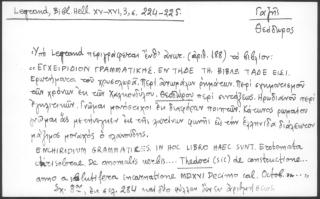 Legrand, Bibl. Hell. XV-XVI, 3, σ. 224-225.
Γαζῆς
Θεόδωρος
Ὑπὸ Legrand περιγράφεται ἔνθ' ἀνωτ. (ἀριθ. 188) τὸ βιβλίον:
"ΕΓΧΕΙΡΙΔΙΟΝ ΓΡΑΜΜΑΤΙΚΗΣ. ΕΝ ΤΗΔΕ ΤΗ ΒΙΒΛΩ ΤΑΔΕ ΕΙΣΙ.
Ἐρωτήματα τοῦ χρυσολωρᾶ. Περὶ ἀνωμάλων ῥημάτων. Περὶ σχηματισμοῦ
τῶν χρόνων ἐκ τῶν Χαλκονδύλου. Θεοδώρου περὶ συντάξεως. Ἡρωδιανοῦ περὶ
ἐγκλιτικῶν. Γνῶμαι μονόστιχοι ἐκ διαφόρων ποιητῶν. Κάτωνος
εἰς τὴν Ἑλληνίδα διάλεκτον
μάξιμος μοναχὸς ὁ πλανούδης.
ENCHIRIDIUM GRAMMATICES. IN HOC LIBRO HAEC SUNT. Erotemata
chrisolorae De anomalis verbis.... Theodori (sic) de constructione...
anno a salutifera incarnatione MDXI Decimo cal. Octob.
Σχ. 8ον, ἐκ σελ. 284 καὶ δύο φύλλων ἄνευ ἀριθμήσεως.